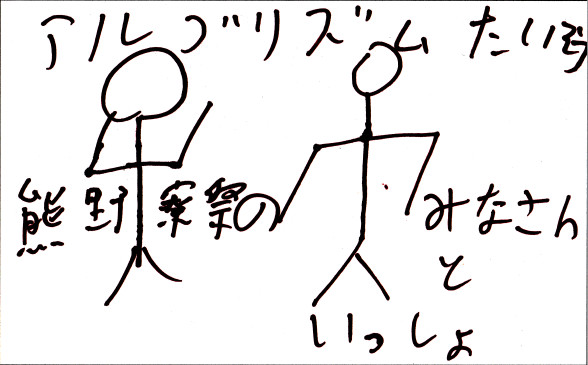 アルゴリズム たいそう
熊野寮祭の みなさん
と
いっしょ